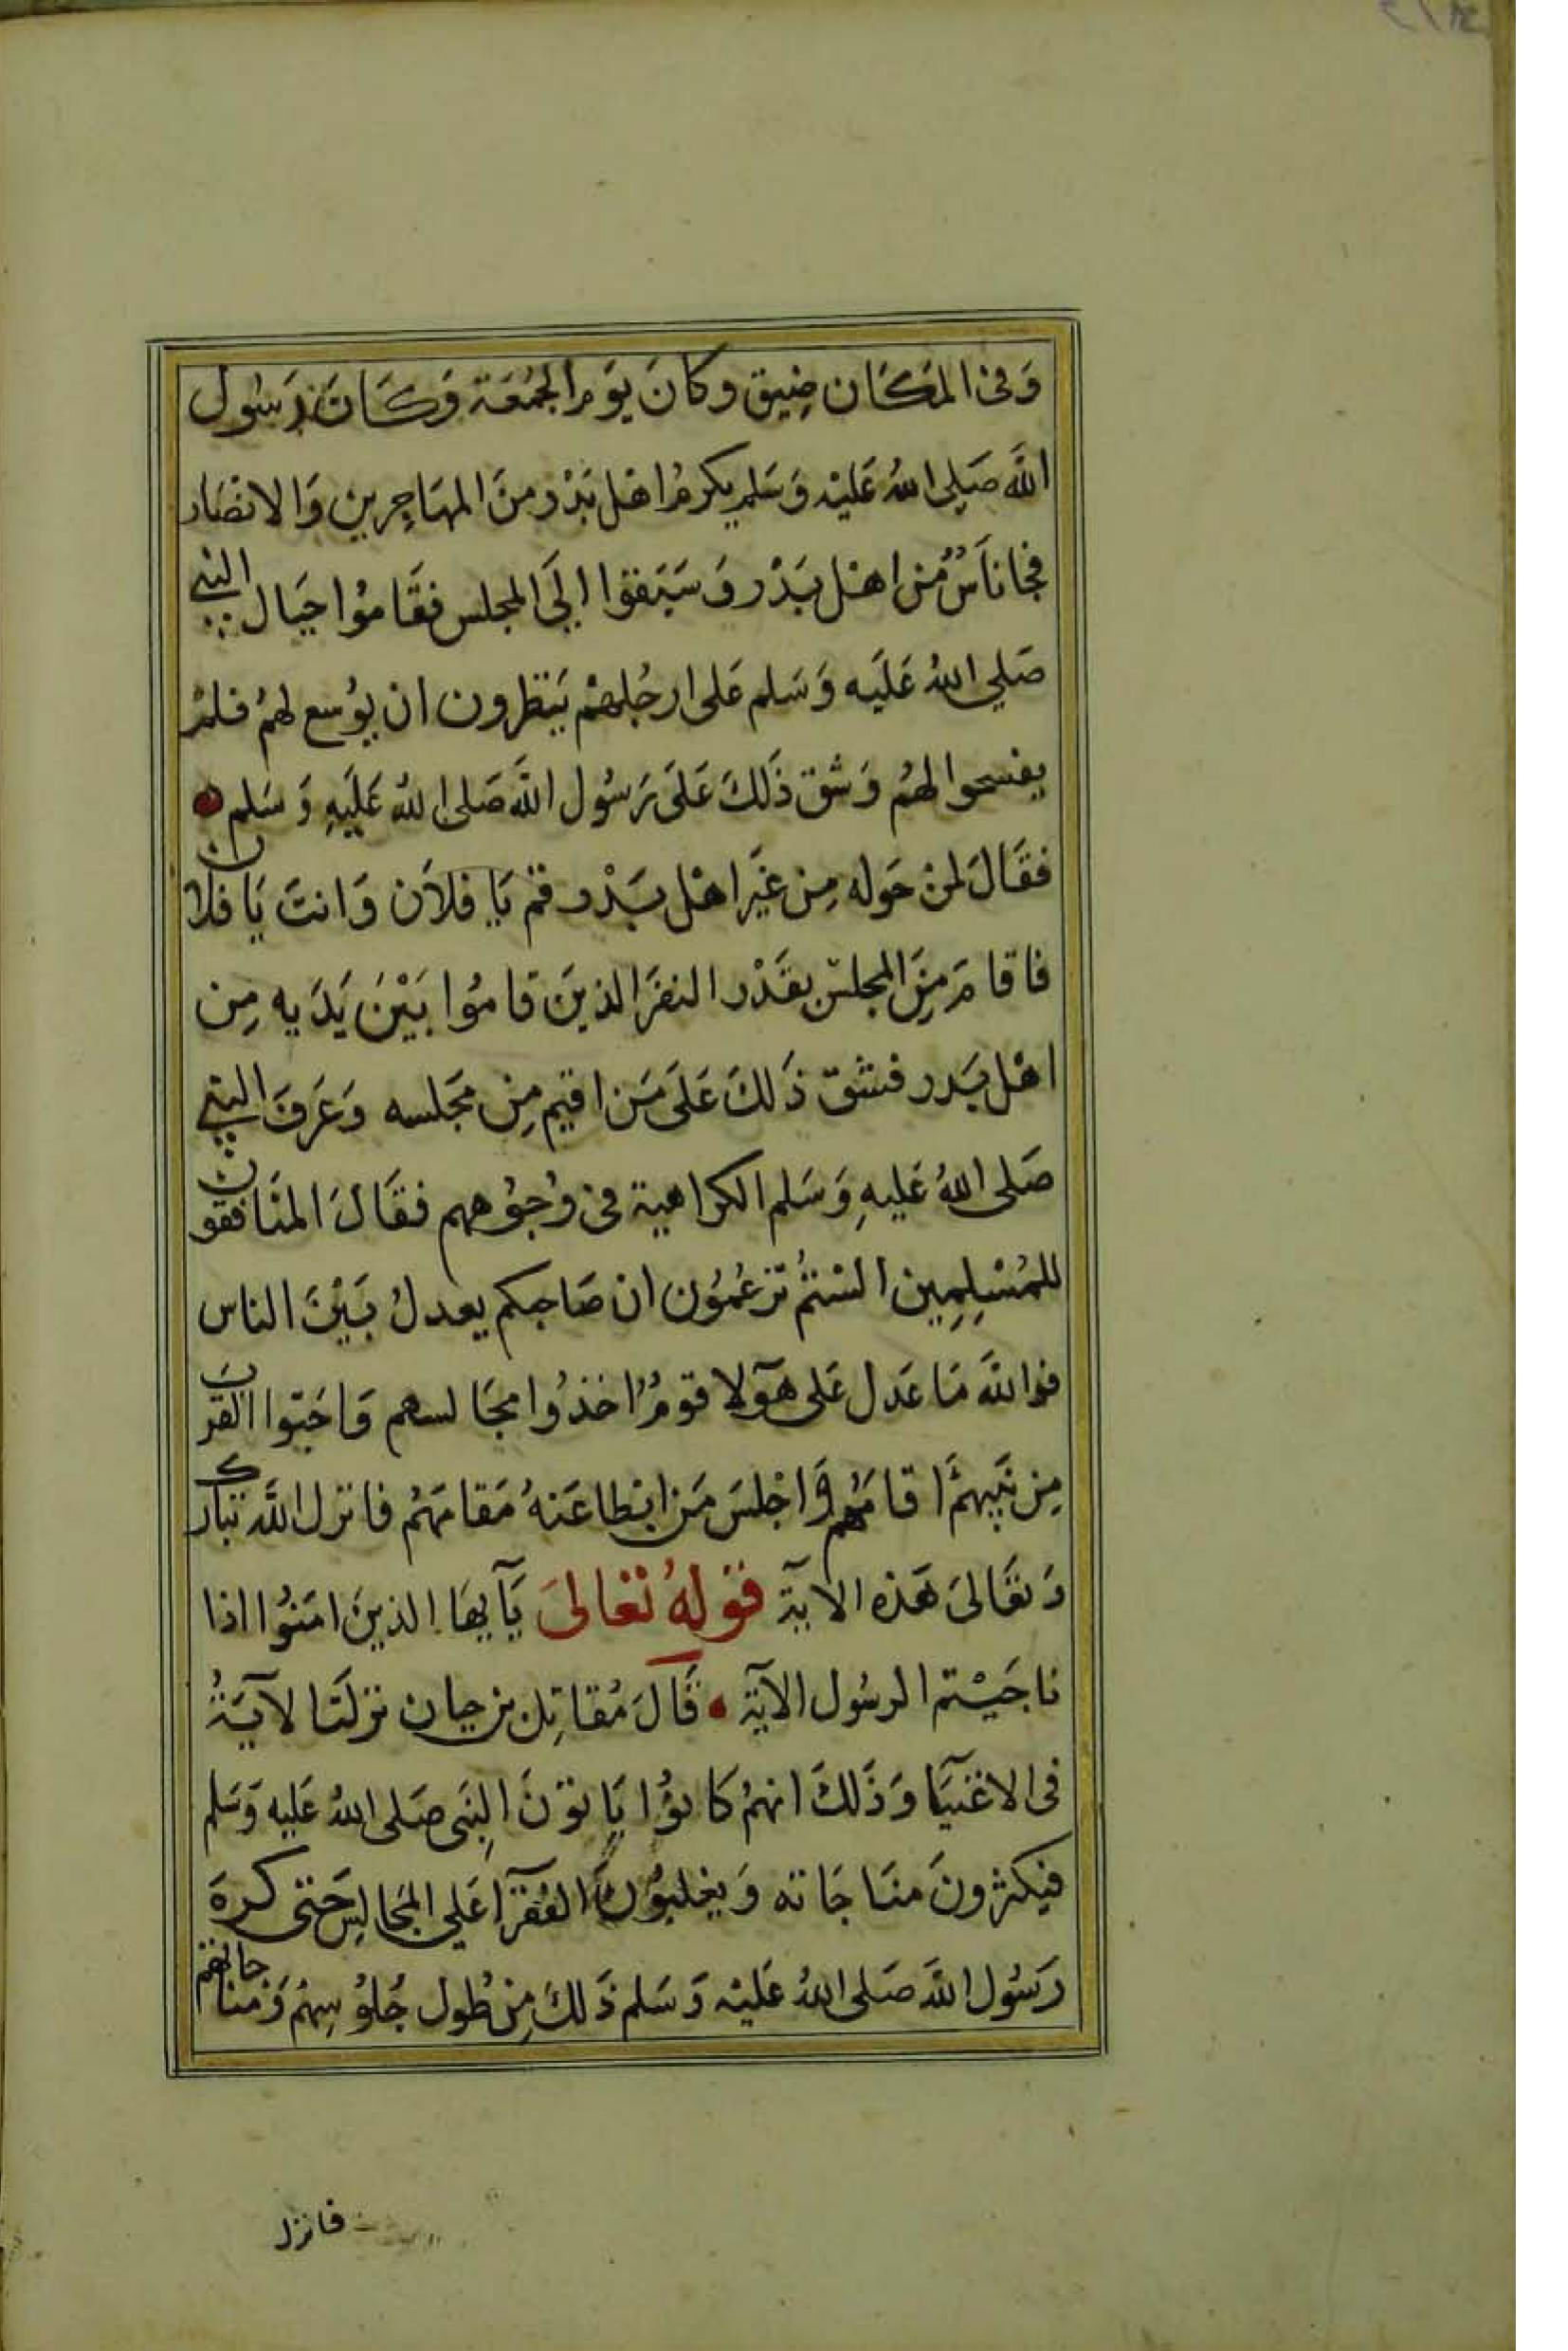 وَفى المكَان ضِيق وكانَ يوَم الجمُعَة وَكَانَ رَسُول
اللَّه صَلى اللهُ عَليْه وَسَلم يكرمُ اهْل بَدْر منَ المهَاجِرين وَالانصَار
فجا ناَسٌ مُن اهْل بَدْر وَسَبَقوا الىَ المجلس فقَامُوا حيَال النبي
صَلي اللهُ عَلَيه وَسَلم عَلى ارجُلهمْ يَنتظرون ان يوُسع لهمُ فلمْ
يفسحوا لهُم وَشق ذَلكَ عَلىَ رَسُول اللَّه صَلى اللهُ عَلَيهِ وَسَلم
فقَالَ لمنْ حَوله مِن غَير اهْل بَدْر قم يَا فلاَن وَانتَ يَا فلان
فاقامَ مِنَ المجلسْ بقَدْر النفرَ الذينَ قامُوا بَيْنَ يَدَيه مِن
اهْل بَدر فشق ذَلكَ عَلىَ مَن اقيم مِن مَجلسه وَعَرَفَ النبي
صَلى اللهُ عَليهِ وَسَلم الكراهية فى وُجوُههم فقَالَ المنَافقون
للمُسْلِمِين الستمُ تزعُموُن ان صَاحبكم يعدلُ بَيْنَ الناس
فوالله مَا عَدل عَلى هَؤلا قومٌ اخذوُا مجَالسهم وَاحَبوا القرب
مِن نَبِيهمْ اقامَهُم وَاجْلسَ مَن ابطا عَنهُ مَقامَهُم فانزل اللَّه تبارك
وَتعَالىَ هَذه الايَة قوَلهُ تعَالىَ يَآيهَا الذينَ امَنُوا اذا
ناجَيْتم الرسُول الآيَة قَالَ مُقاتِل بن حيان نزلتَ الآيَةُ
فى الاغنيَآ وَذَلكَ انهمُ كَانوُا يَاتوْنَ النِبَى صَلى اللهُ عَليه وَسَلم
فيَكثرونَ منَاجَاته وَيغلبوُنَ الفُقرَآ عَلى المجَالِس حَتى كرهَ
رَسُول اللَّه صَلى اللهُ عَليْه وَسَلم ذَلكَ مِن طُول جُلوُسِهمُ وَمناجاتهم
فانزل